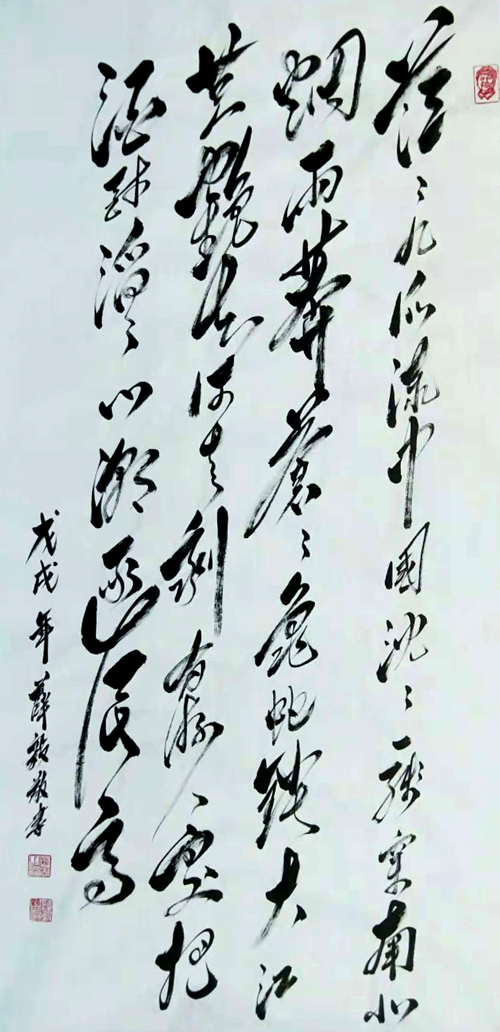 茫〻九派流中國沈〻一线穿南北
烟雨莽苍〻龟蛇锁大江
黄鹤知何去剩有游人处把
酒酹滔〻心潮逐浪高
戊戌年薛敬书